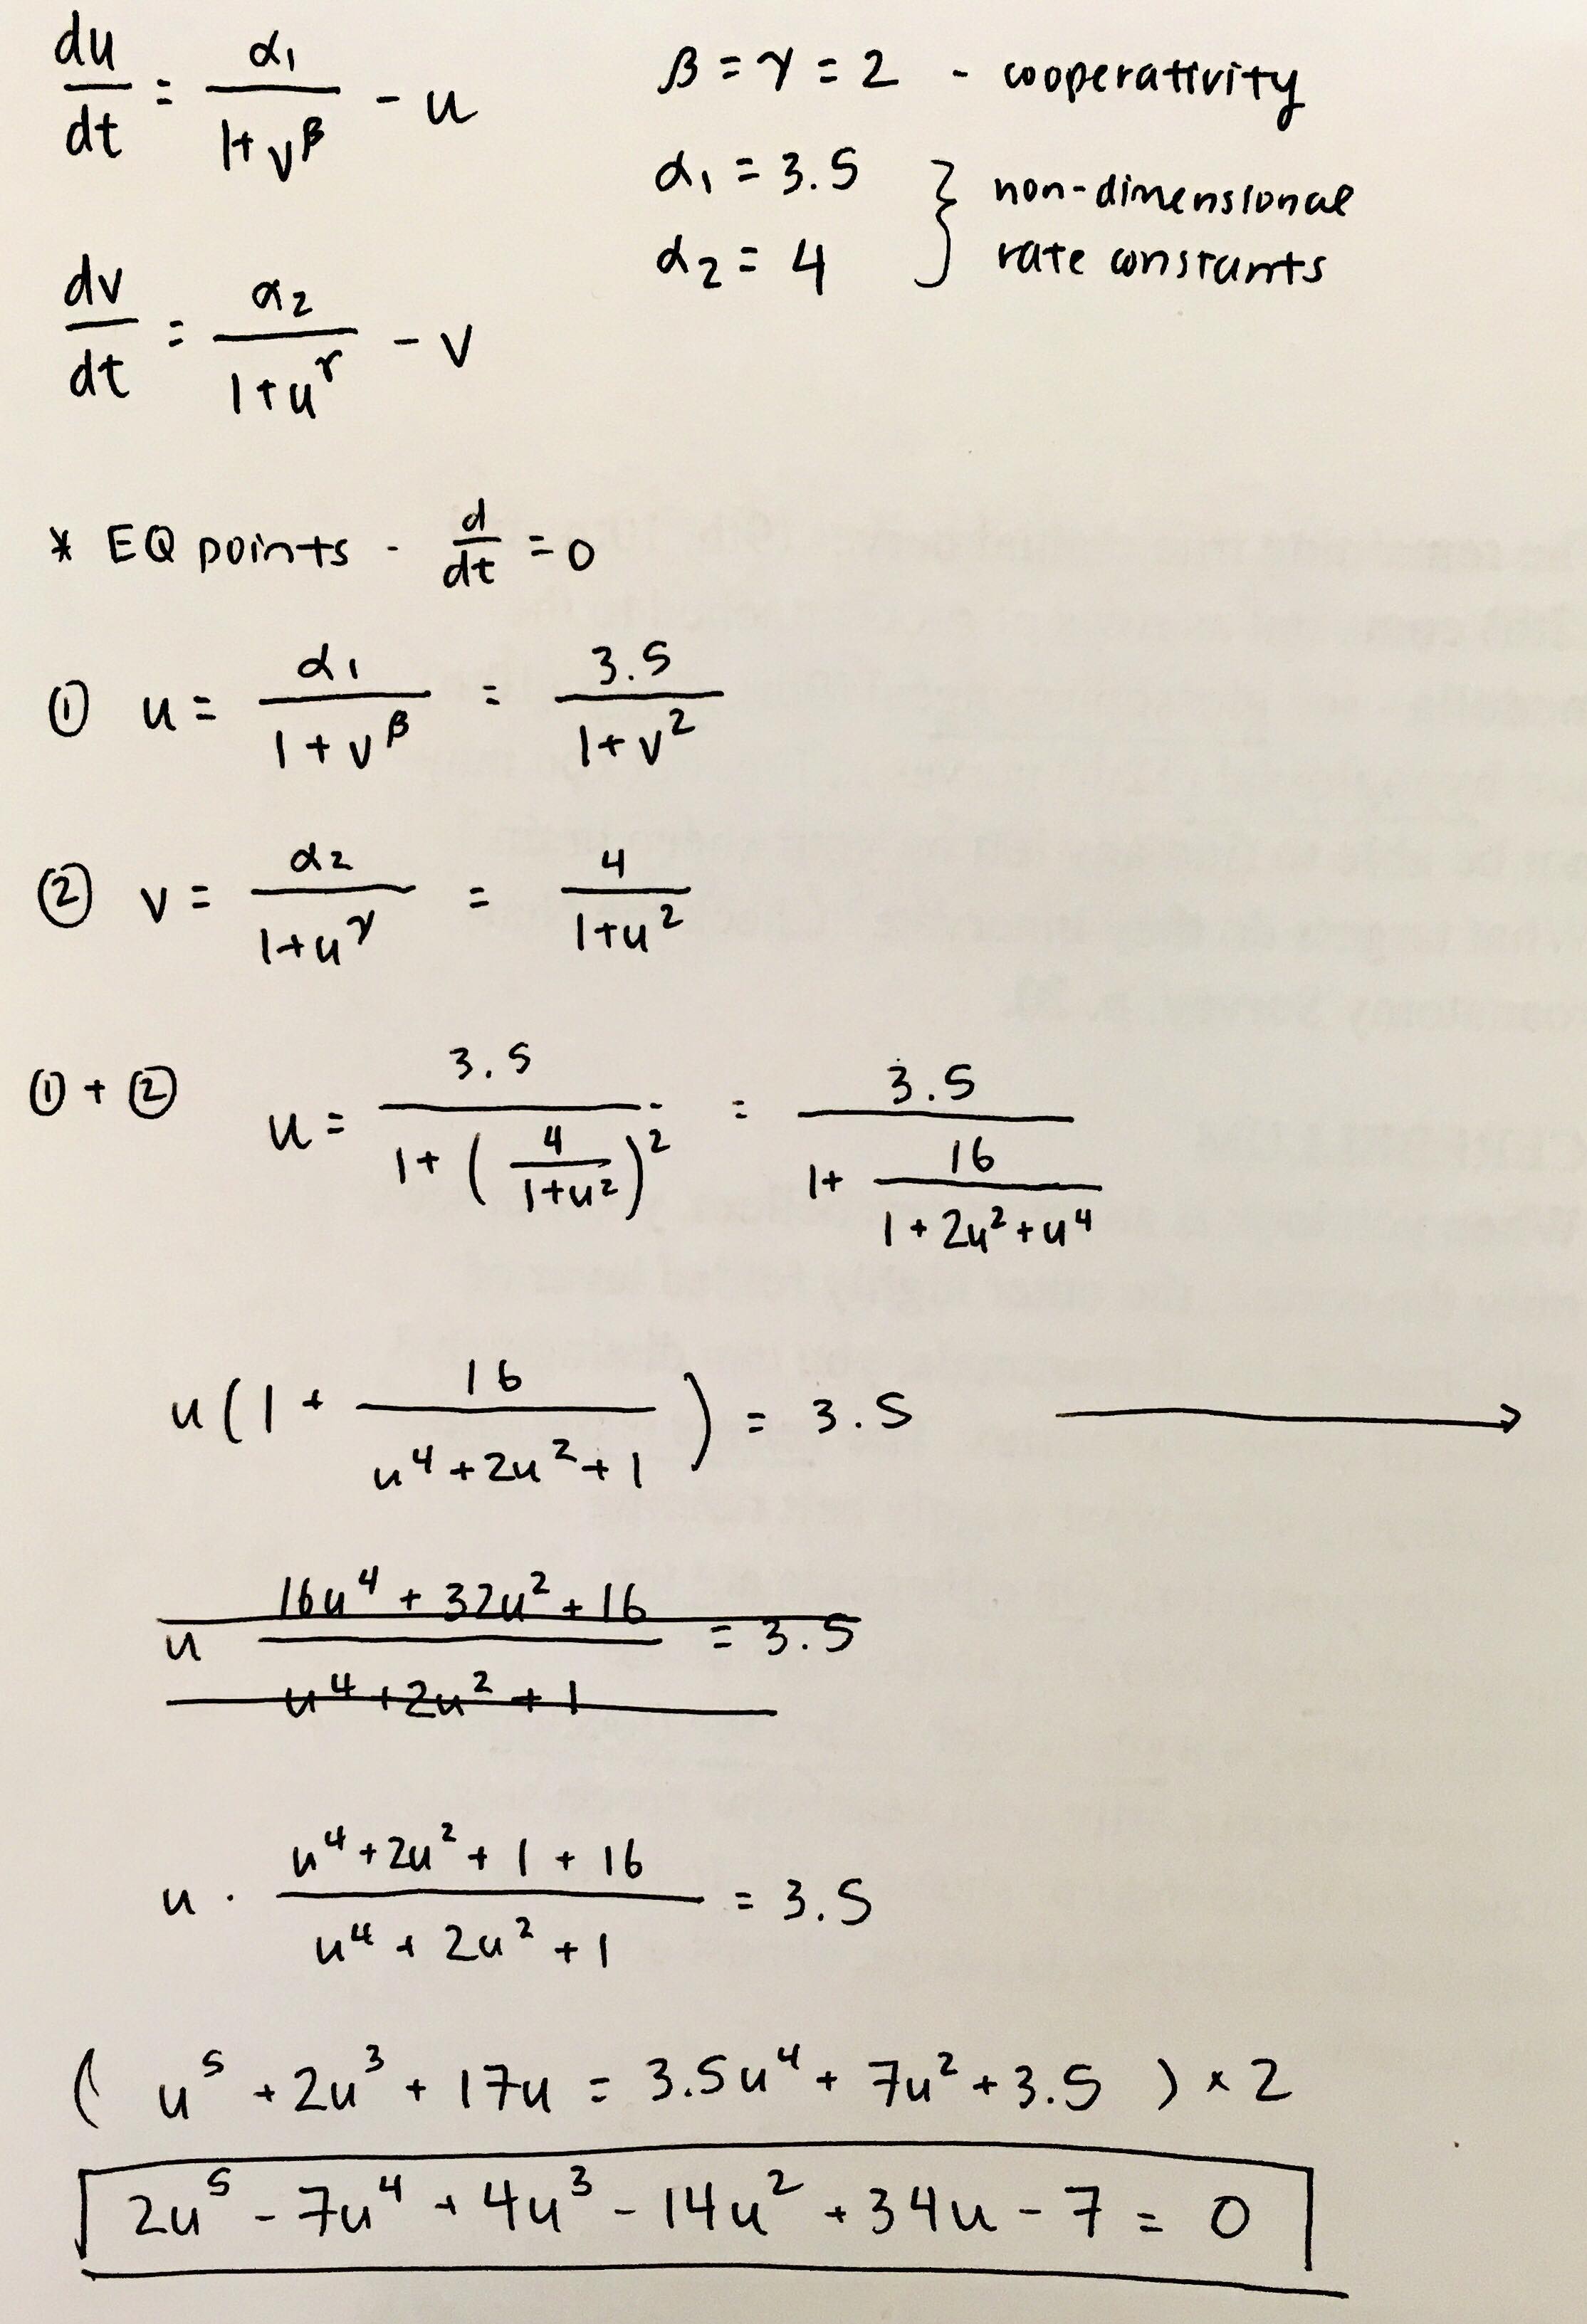 du/dt = α₁/(1+v^β) - u
β = γ = 2 - cooperativity
α₁ = 3.5 } non-dimensional
α₂ = 4 rate constants
dv/dt = α₂/(1+u^γ) - v
* EQ points - d/dt = 0
① u = α₁/(1+v^β) = 3.5/(1+v²)
② v = α₂/(1+u^γ) = 4/(1+u²)
① + ② u = 3.5/(1+(4/(1+u²))²) = 3.5/(1+16/(1+2u²+u⁴))
u(1 + 16/(u⁴+2u²+1)) = 3.5 →
u (16u⁴+32u²+16)/(u⁴+2u²+1) = 3.5
u · (u⁴+2u²+1+16)/(u⁴+2u²+1) = 3.5
( u⁵ + 2u³ + 17u = 3.5u⁴ + 7u² + 3.5 ) × 2
2u⁵ - 7u⁴ + 4u³ - 14u² + 34u - 7 = 0